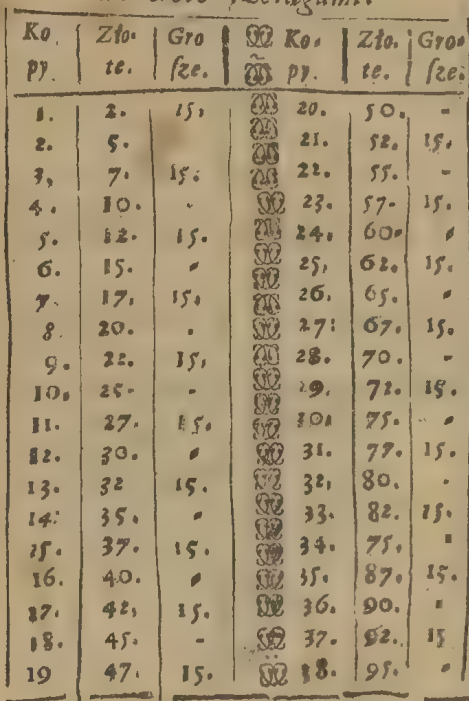 Ko. Zło. Gro Ko. Zło. Gro
py. te. ſze. py. te. ſze.
1. 2. 15. 20. 50. -
2. 5. 21. 52. 15.
3, 7. 15. 22. 55. -
4. 10. . 23. 57- 15.
5. 12. 15. 24. 60.
6. 15. 25, 62. 15.
7. 17, 15. 26. 65.
8. 20. . 27: 67. 15.
9. 22. 15, 28. 70. -
10. 25- - 29. 72. 15.
11. 27. 15. 30. 75. -
12. 30. 31. 77. 15.
13. 32 15. 32, 80. -
14: 35. 33. 82. 15.
15. 37. 15. 34. 75.
16. 40. 35. 87. 15.
17. 42, 15. 36. 90.
18. 45. - 37. 92. 15
19 47. 15. 38. 95.